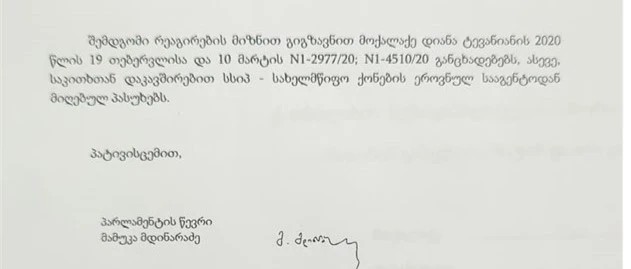 შემდგომი რეაგირების მიზნით გიგზავნით მოქალაქე დიანა ტევანიანის 2020
წლის 19 თებერვლისა და 10 მარტის N1-2977/20; N1-4510/20 განცხადებებს, ასევე,
საკითხთან დაკავშირებით სსიპ - სახელმწიფო ქონების ეროვნულ სააგენტოდან
მიღებულ პასუხებს.
პატივისცემით,
პარლამენტის წევრი
მამუკა მდინარაძე